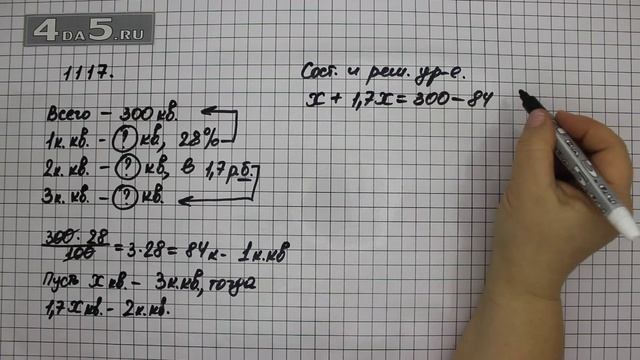 4DA5.RU
1117.
Всего – 300 кв.
1к. кв. – ? кв, 28%
2к. кв. – ? кв, в 1,7 р.б.
3к. кв. – ? кв.
300 · 28 / 100 = 3·28 = 84к – 1к.кв
Пусть х кв. – 3к.кв., тогда
1,7х кв. – 2к.кв.
Сост. и реш. ур-е.
х + 1,7х = 300 – 84